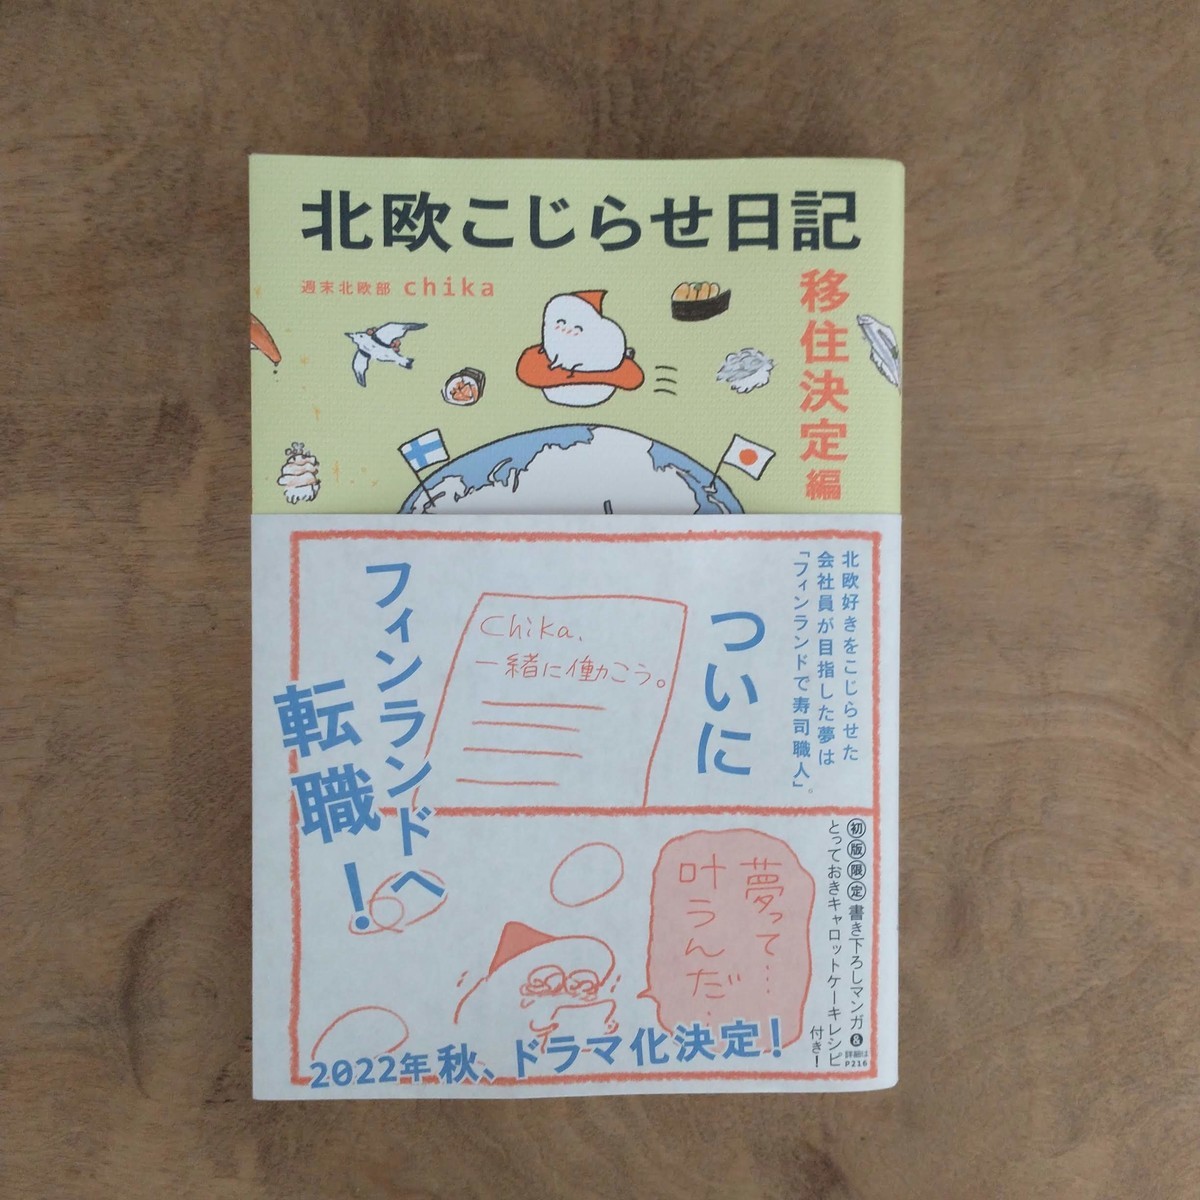 北欧こじらせ日記
移住決定編
週末北欧部 chika
北欧好きをこじらせた
会社員が目指した夢は
「フィンランドで寿司職人」。
ついに
フィンランドへ
転職！
Chika、
一緒に働こう。
夢って…
叶うんだ…
初版限定 書き下ろしマンガ&
とっておきキャロットケーキレシピ
付き！
詳細は
P216
2022年秋、ドラマ化決定！